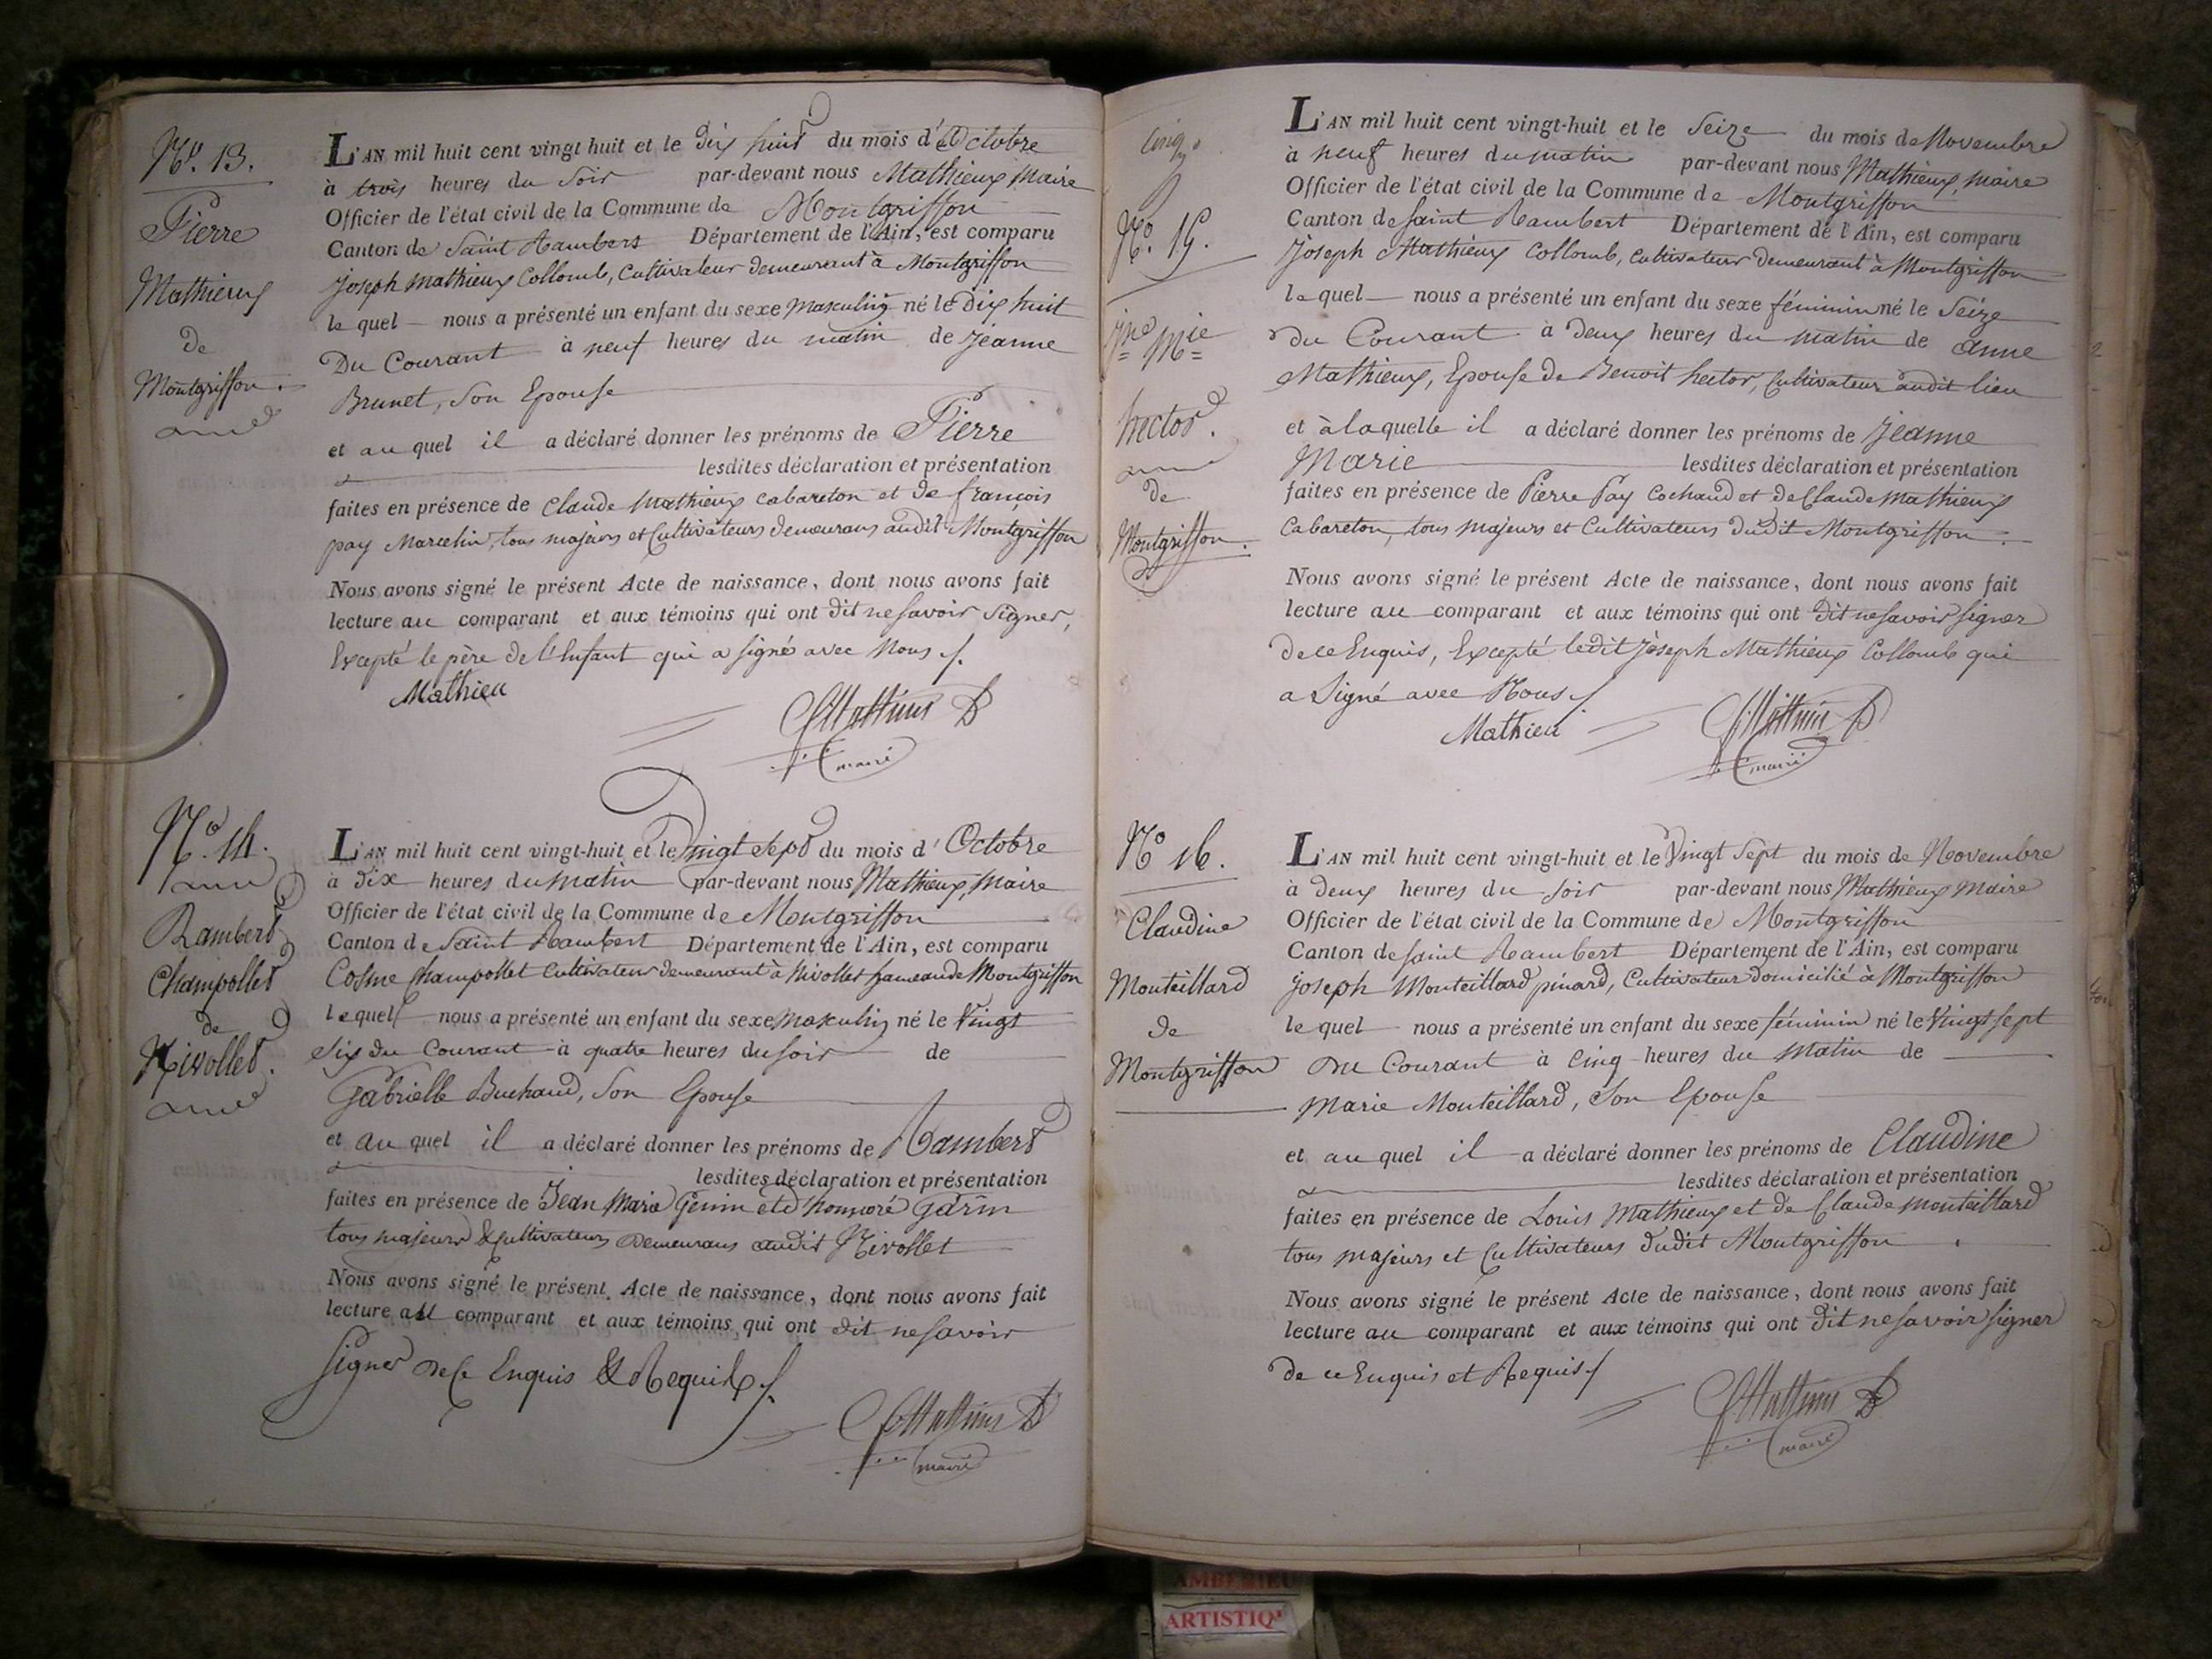 N.o 13.
Pierre
Mathieux
de
Montgriffon.
L'AN mil huit cent vingt huit et le Dix huit du mois d'Octobre
à trois heures du Soir par-devant nous Mathieux maire
Officier de l'état civil de la Commune de Montgriffon
Canton de Saint Rambert Département de l'Ain, est comparu
joseph mathieux Collomb, Cultivateur demeurant à Montgriffon
le quel nous a présenté un enfant du sexe masculin né le Dix huit
Du Courant à neuf heures du matin de jeanne
Brunet, Son Epouse
et au quel il a déclaré donner les prénoms de Pierre
lesdites déclaration et présentation
faites en présence de Claude mathieux cabareton et de françois
pay Marcelin, tous majeurs et Cultivateurs demeurans audit Montgriffon
Nous avons signé le présent Acte de naissance, dont nous avons fait
lecture au comparant et aux témoins qui ont dit ne savoir signer,
Excepté le père de l'Enfant qui a signé avec Nous
Mathieu
maire
N.o 14.
Rambert
Champollet
de
Nivollet.
L'AN mil huit cent vingt-huit et le Vingt Sept du mois d'Octobre
à dix heures du matin par-devant nous Mathieux, maire
Officier de l'état civil de la Commune de Montgriffon
Canton de Saint Rambert Département de l'Ain, est comparu
Cosme Champollet Cultivateur demeurant à Nivollet hameau de Montgriffon
lequel nous a présenté un enfant du sexe masculin né le Vingt
Six du Courant à quatre heures du soir de
Gabrielle Buchaud, Son Epouse
et au quel il a déclaré donner les prénoms de Rambert
lesdites déclaration et présentation
faites en présence de Jean Marie Genin et d'honnoré Garin
tous majeurs & Cultivateurs Demeurans audit Nivollet
Nous avons signé le présent Acte de naissance, dont nous avons fait
lecture au comparant et aux témoins qui ont dit ne savoir
signer de ce Enquis & Requis
maire
cinq.
N.o 15.
jne mie
hector.
de
Montgriffon.
L'AN mil huit cent vingt-huit et le Seize du mois de Novembre
à neuf heures du matin par-devant nous Mathieux, maire
Officier de l'état civil de la Commune de Montgriffon
Canton de Saint Rambert Département de l'Ain, est comparu
joseph Mathieux Collomb, cultivateur demeurant à Montgriffon
le quel nous a présenté un enfant du sexe féminin né le Seize
du Courant à deux heures du matin de anne
Mathieux, Epouse de Benoit hector, Cultivateur audit lieu
et à laquelle il a déclaré donner les prénoms de jeanne
Marie lesdites déclaration et présentation
faites en présence de Pierre Pay Cochaud et de Claude Mathieux
Cabareton, tous majeurs et Cultivateurs dudit Montgriffon.
Nous avons signé le présent Acte de naissance, dont nous avons fait
lecture au comparant et aux témoins qui ont dit ne savoir signer
de ce Enquis, Excepté ledit joseph Mathieux Collomb qui
a Signé avec Nous
Mathieu
maire
N.o 16.
Claudine
Monteillard
de
Montgriffon
L'AN mil huit cent vingt-huit et le Vingt Sept du mois de Novembre
à deux heures du soir par-devant nous Mathieux maire
Officier de l'état civil de la Commune de Montgriffon
Canton de Saint Rambert Département de l'Ain, est comparu
joseph Monteillard pinard, Cultivateur domicilié à Montgriffon
le quel nous a présenté un enfant du sexe féminin né le Vingt sept
Du Courant à Cinq heures du matin de
Marie Monteillard, Son Epouse
et au quel il a déclaré donner les prénoms de Claudine
lesdites déclaration et présentation
faites en présence de Louis Mathieux et de Claude monteillard
tous majeurs et Cultivateurs dudit Montgriffon.
Nous avons signé le présent Acte de naissance, dont nous avons fait
lecture au comparant et aux témoins qui ont dit ne savoir signer
de ce Enquis et Requis
maire
ARTISTIQ